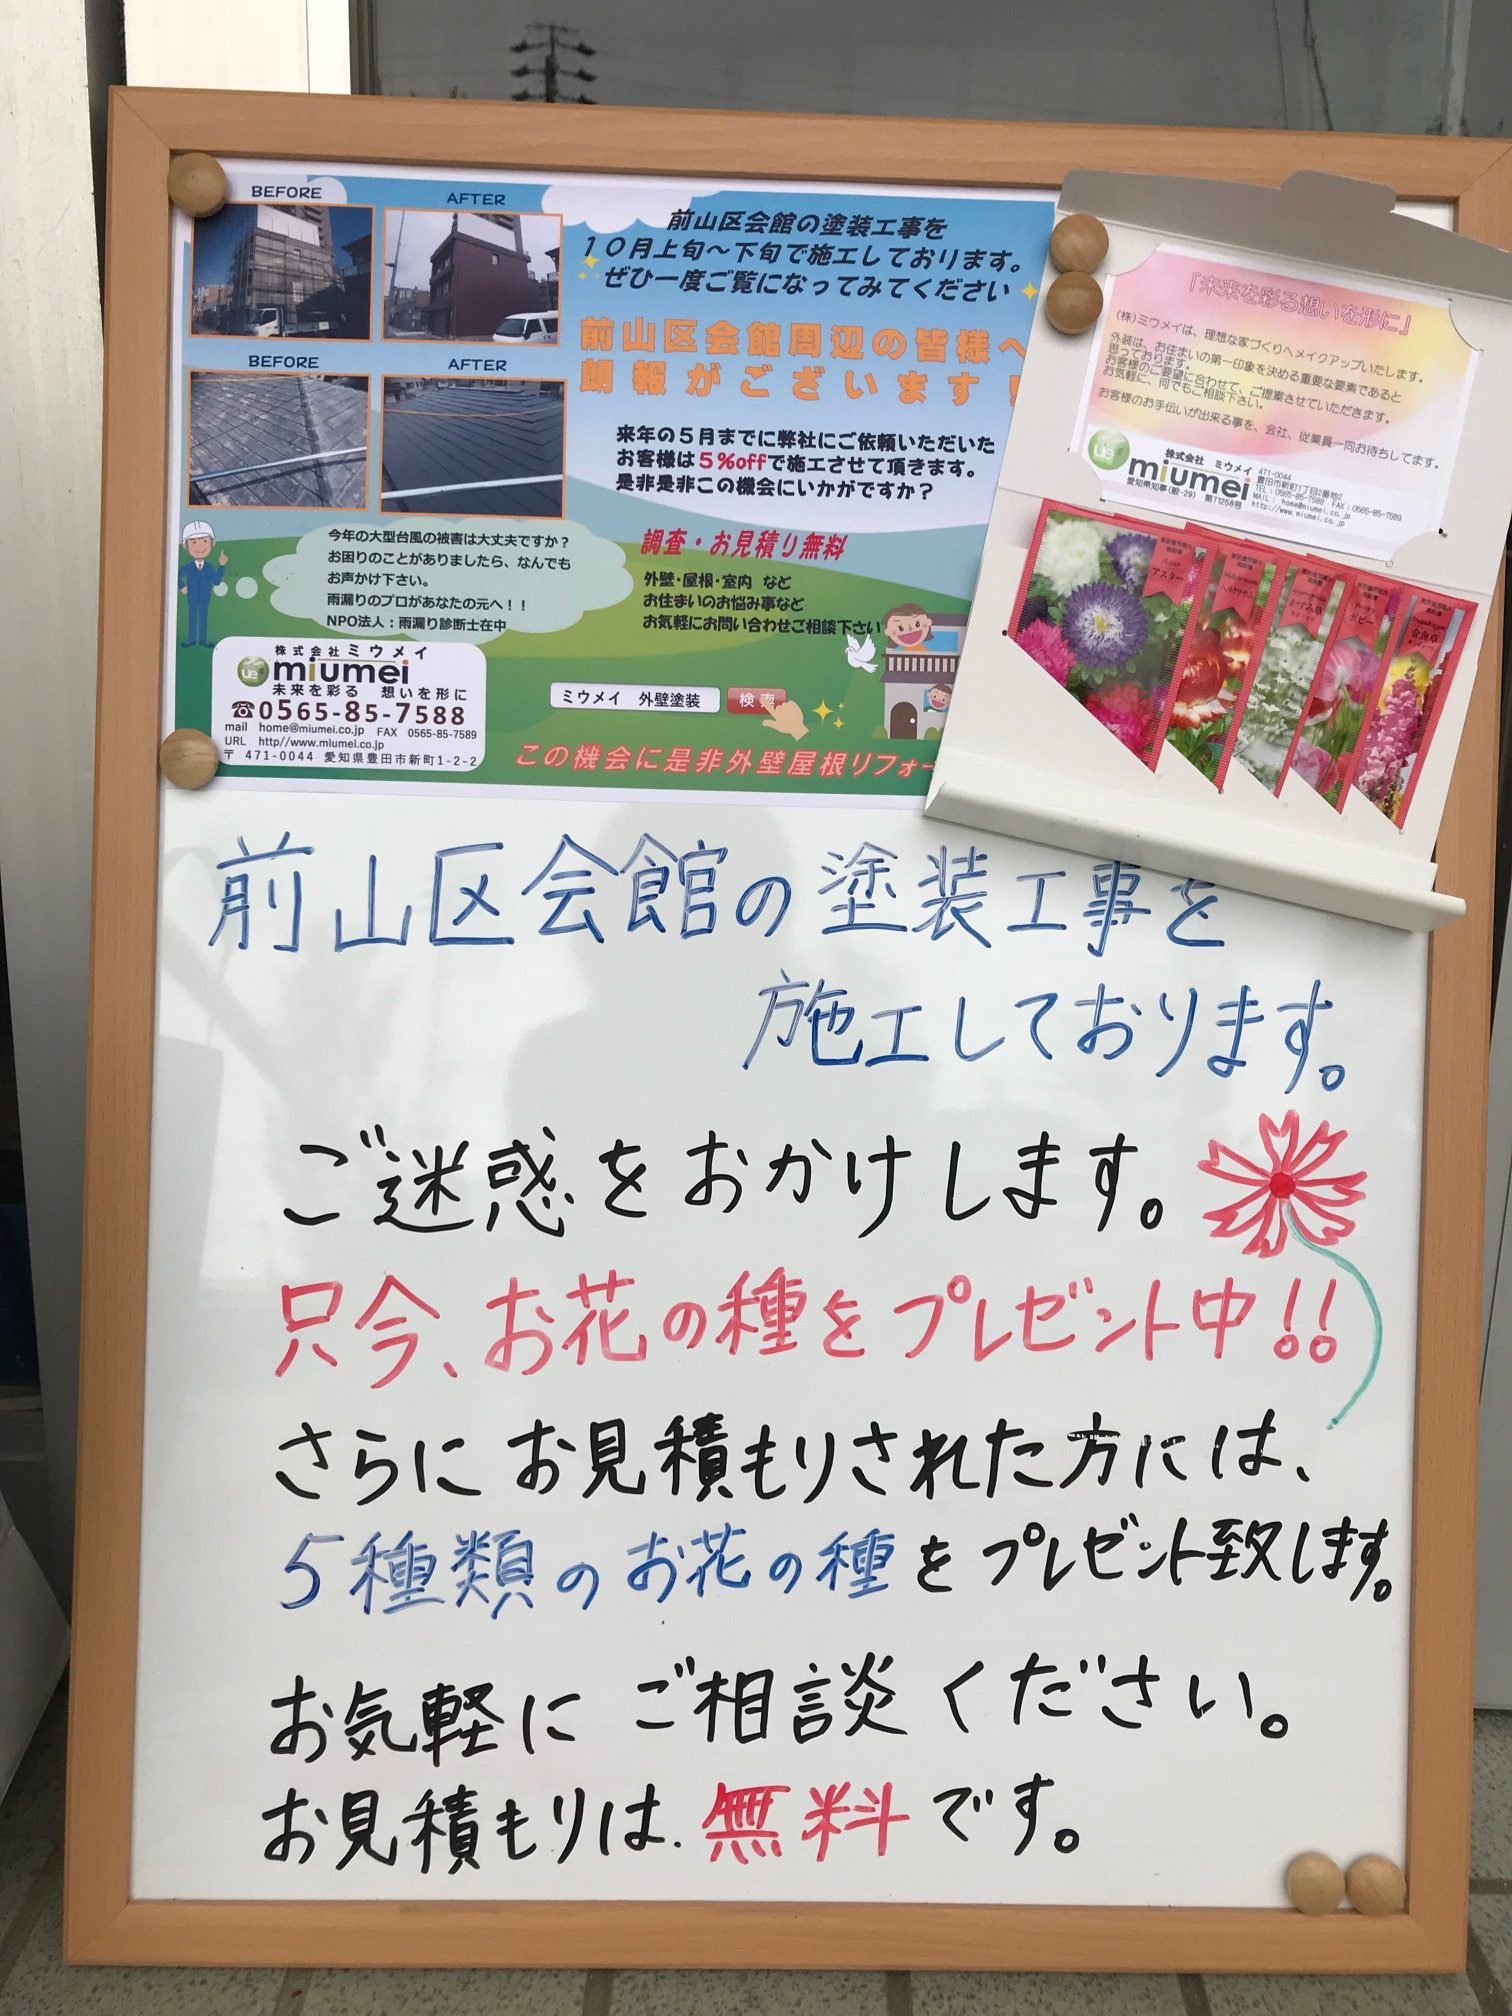 BEFORE
AFTER
前山区会館の塗装工事を
10月上旬〜下旬で施工しております。
ぜひ一度ご覧になってみてください
前山区会館周辺の皆様へ
朗報がございます!
BEFORE
AFTER
来年の5月までに弊社にご依頼いただいた
お客様は5%offで施工させて頂きます。
是非是非この機会にいかがですか?
今年の大型台風の被害は大丈夫ですか?
お困りのことがありましたら、なんでも
お声かけ下さい。
雨漏りのプロがあなたの元へ!!
NPO法人:雨漏り診断士在中
調査・お見積り無料
外壁・屋根・室内 など
お住まいのお悩み事など
お気軽にお問い合わせご相談下さい
株式会社 ミウメイ
miumei
未来を彩る 想いを形に
☎0565-85-7588
mail home@miumei.co.jp FAX 0565-85-7589
URL http//www.miumei.co.jp
〒 471-0044 愛知県豊田市新町1-2-2
ミウメイ 外壁塗装
検索
この機会に是非外壁屋根リフォー
「未来を彩る想いを形に」
(株)ミウメイは、理想な家づくりへメイクアップいたします。
外装は、お住まいの第一印象を決める重要な要素であると
思っております。
お客様のご要望に合わせて、ご提案させていただきます。
お気軽に、何でもご相談下さい。
お客様のお手伝いが出来る事を、会社、従業員一同お待ちしてます。
株式会社 ミウメイ
miumei
愛知県知事(般-29) 第71258号
471-0044
豊田市新町1丁目2番地2
TEL:0565-85-7588 FAX:0565-85-7589
MAIL: home@miumei.co.jp
http://www.miumei.co.jp
アスター
ヘリクリサム
かすみ草
ポピー
金魚草
前山区会館の塗装工事を
施工しております。
ご迷惑をおかけします。
只今、お花の種をプレゼント中!!
さらにお見積もりされた方には、
5種類のお花の種をプレゼント致します。
お気軽にご相談ください。
お見積もりは、無料です。